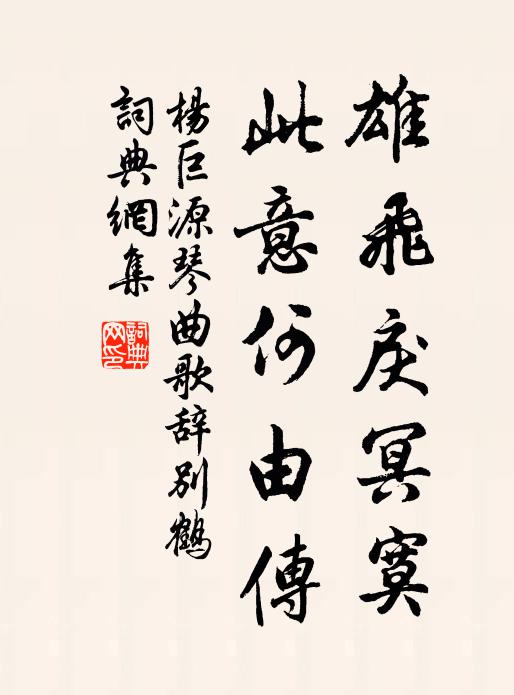 雄飛戾冥寞
此意何由傳
楊巨源琴曲歌辞别鶴
詞典網集
詞典網印